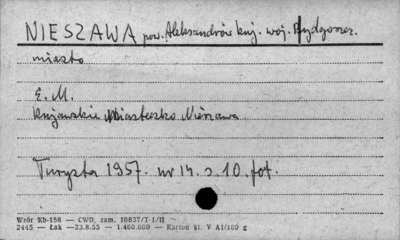 NIESZAWA pow. Aleksandrów kuj. woj. Bydgoszcz.
miasto
E. M.
Kujawskie Miasteczko Nieszawa
Turysta 1957. nr 14. s. 10. fot.
Wzór Kb-156 — CWD, zam. 10837/T-1/II
2445 — Łak — 23.8.55 — 1.460.000 — Karton kl. V A1/180 g